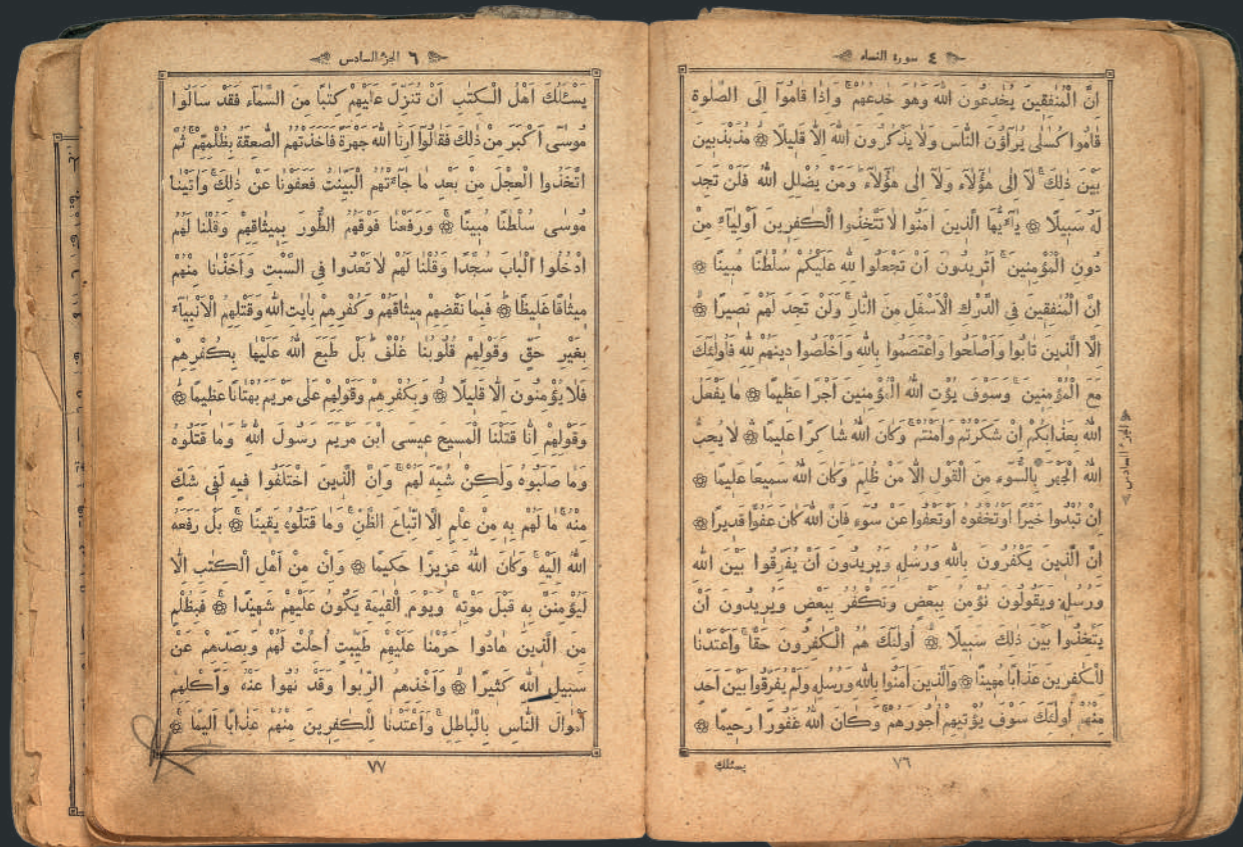 ٤ سورة النساء
اِنَّ الْمُنٰفِقٖينَ يُخٰدِعُونَ اللّٰهَ وَهُوَ خٰدِعُهُمْۚ وَاِذٰا قٰامُوٓا اِلَى الصَّلٰوةِ
قٰامُوا كُسٰالٰى يُرٰٓاؤُنَ النّٰاسَ وَلٰا يَذْكُرُونَ اللّٰهَ اِلّٰا قَلٖيلًا ۞ مُذَبْذَبٖينَ
بَيْنَ ذٰلِكَۗ لٰٓا اِلٰى هٰٓؤُلٰٓاءِ وَلٰٓا اِلٰى هٰٓؤُلٰٓاءِۜ وَمَنْ يُضْلِلِ اللّٰهُ فَلَنْ تَجِدَ
لَهُ سَبٖيلًا ۞ يٰٓا اَيُّهَا الَّذٖينَ اٰمَنُوا لٰا تَتَّخِذُوا الْكٰفِرٖينَ اَوْلِيٰٓاءَ مِنْ
دُونِ الْمُؤْمِنٖينَۜ اَتُرٖيدُونَ اَنْ تَجْعَلُوا لِلّٰهِ عَلَيْكُمْ سُلْطٰنًا مُبٖينًا ۞
اِنَّ الْمُنٰفِقٖينَ فِى الدَّرْكِ الْاَسْفَلِ مِنَ النّٰارِۚ وَلَنْ تَجِدَ لَهُمْ نَصٖيرًا ۞
اِلَّا الَّذٖينَ تٰابُوا وَاَصْلَحُوا وَاعْتَصَمُوا بِاللّٰهِ وَاَخْلَصُوا دٖينَهُمْ لِلّٰهِ فَاُولٰٓئِكَ
مَعَ الْمُؤْمِنٖينَۜ وَسَوْفَ يُؤْتِ اللّٰهُ الْمُؤْمِنٖينَ اَجْرًا عَظٖيمًا ۞ مٰا يَفْعَلُ
اللّٰهُ بِعَذٰابِكُمْ اِنْ شَكَرْتُمْ وَاٰمَنْتُمْۜ وَكٰانَ اللّٰهُ شٰاكِرًا عَلٖيمًا ۞ لٰا يُحِبُّ
اللّٰهُ الْجَهْرَ بِالسُّوٓءِ مِنَ الْقَوْلِ اِلّٰا مَنْ ظُلِمَۜ وَكٰانَ اللّٰهُ سَمٖيعًا عَلٖيمًا ۞
اِنْ تُبْدُوا خَيْرًا اَوْ تُخْفُوهُ اَوْ تَعْفُوا عَنْ سُوٓءٍ فَاِنَّ اللّٰهَ كٰانَ عَفُوًّا قَدٖيرًا ۞
اِنَّ الَّذٖينَ يَكْفُرُونَ بِاللّٰهِ وَرُسُلِهٖ وَيُرٖيدُونَ اَنْ يُفَرِّقُوا بَيْنَ اللّٰهِ
وَرُسُلِهٖ وَيَقُولُونَ نُؤْمِنُ بِبَعْضٍ وَنَكْفُرُ بِبَعْضٍ وَيُرٖيدُونَ اَنْ
يَتَّخِذُوا بَيْنَ ذٰلِكَ سَبٖيلًا ۞ اُولٰٓئِكَ هُمُ الْكٰافِرُونَ حَقًّاۚ وَاَعْتَدْنٰا
لِلْكٰافِرٖينَ عَذٰابًا مُهٖينًا ۞ وَالَّذٖينَ اٰمَنُوا بِاللّٰهِ وَرُسُلِهٖ وَلَمْ يُفَرِّقُوا بَيْنَ اَحَدٍ
مِنْهُمْ اُولٰٓئِكَ سَوْفَ يُؤْتٖيهِمْ اُجُورَهُمْۜ وَكٰانَ اللّٰهُ غَفُورًا رَحٖيمًا ۞
الجزء السادس
٧٦
يسئلك
٦ الجزء السادس
يَسْئَلُكَ اَهْلُ الْكِتٰبِ اَنْ تُنَزِّلَ عَلَيْهِمْ كِتٰبًا مِنَ السَّمٰٓاءِ فَقَدْ سَاَلُوا
مُوسٰٓى اَكْبَرَ مِنْ ذٰلِكَ فَقٰالُٓوا اَرِنَا اللّٰهَ جَهْرَةً فَاَخَذَتْهُمُ الصّٰعِقَةُ بِظُلْمِهِمْۚ ثُمَّ
اتَّخَذُوا الْعِجْلَ مِنْ بَعْدِ مٰا جٰٓاءَتْهُمُ الْبَيِّنٰاتُ فَعَفَوْنٰا عَنْ ذٰلِكَۚ وَاٰتَيْنٰا
مُوسٰى سُلْطٰنًا مُبٖينًا ۞ وَرَفَعْنٰا فَوْقَهُمُ الطُّورَ بِمٖيثٰاقِهِمْ وَقُلْنٰا لَهُمُ
ادْخُلُوا الْبٰابَ سُجَّدًا وَقُلْنٰا لَهُمْ لٰا تَعْدُوا فِى السَّبْتِ وَاَخَذْنٰا مِنْهُمْ
مٖيثٰاقًا غَلٖيظًا ۞ فَبِمٰا نَقْضِهِمْ مٖيثٰاقَهُمْ وَكُفْرِهِمْ بِاٰيٰاتِ اللّٰهِ وَقَتْلِهِمُ الْاَنْبِيٰٓاءَ
بِغَيْرِ حَقٍّ وَقَوْلِهِمْ قُلُوبُنٰا غُلْفٌۜ بَلْ طَبَعَ اللّٰهُ عَلَيْهٰا بِكُفْرِهِمْ
فَلٰا يُؤْمِنُونَ اِلّٰا قَلٖيلًا ۞ وَبِكُفْرِهِمْ وَقَوْلِهِمْ عَلٰى مَرْيَمَ بُهْتٰانًا عَظٖيمًا ۞
وَقَوْلِهِمْ اِنّٰا قَتَلْنَا الْمَسٖيحَ عٖيسَى ابْنَ مَرْيَمَ رَسُولَ اللّٰهِۚ وَمٰا قَتَلُوهُ
وَمٰا صَلَبُوهُ وَلٰكِنْ شُبِّهَ لَهُمْۜ وَاِنَّ الَّذٖينَ اخْتَلَفُوا فٖيهِ لَفٖى شَكٍّ
مِنْهُۜ مٰا لَهُمْ بِهٖ مِنْ عِلْمٍ اِلَّا اتِّبٰاعَ الظَّنِّۚ وَمٰا قَتَلُوهُ يَقٖينًا ۞ بَلْ رَفَعَهُ
اللّٰهُ اِلَيْهِۜ وَكٰانَ اللّٰهُ عَزٖيزًا حَكٖيمًا ۞ وَاِنْ مِنْ اَهْلِ الْكِتٰبِ اِلّٰا
لَيُؤْمِنَنَّ بِهٖ قَبْلَ مَوْتِهٖۚ وَيَوْمَ الْقِيٰمَةِ يَكُونُ عَلَيْهِمْ شَهٖيدًا ۞ فَبِظُلْمٍ
مِنَ الَّذٖينَ هٰادُوا حَرَّمْنٰا عَلَيْهِمْ طَيِّبٰتٍ اُحِلَّتْ لَهُمْ وَبِصَدِّهِمْ عَنْ
سَبٖيلِ اللّٰهِ كَثٖيرًا ۞ وَاَخْذِهِمُ الرِّبٰوا وَقَدْ نُهُوا عَنْهُ وَاَكْلِهِمْ
اَمْوٰالَ النّٰاسِ بِالْبٰاطِلِۜ وَاَعْتَدْنٰا لِلْكٰفِرٖينَ مِنْهُمْ عَذٰابًا اَلٖيمًا ۞
٧٧